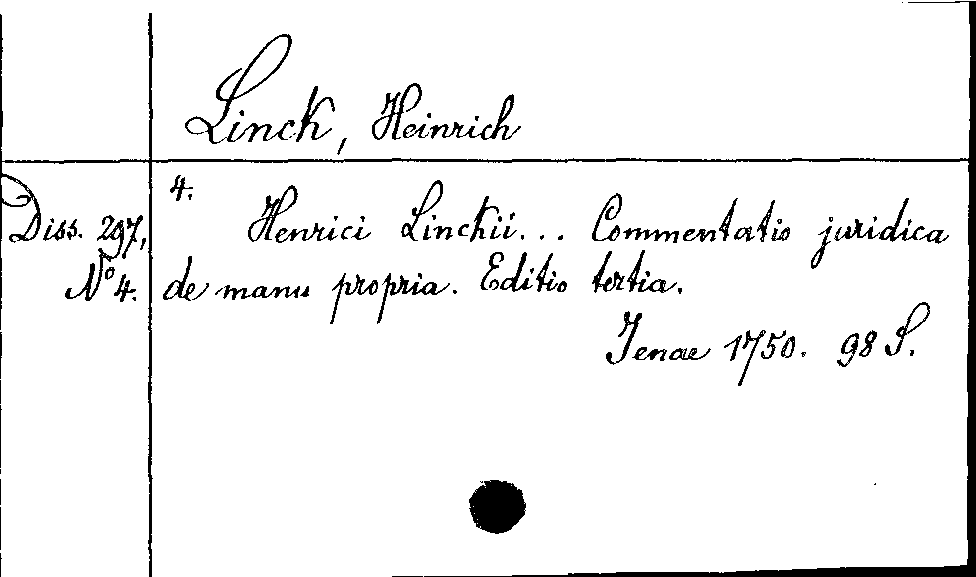 Linck, Heinrich
4.
Diss. 297,
No 4.
Henrici Linckii... Commentatio juridica
de manu propria. Editio tertia.
Jenae 1750. 98 S.